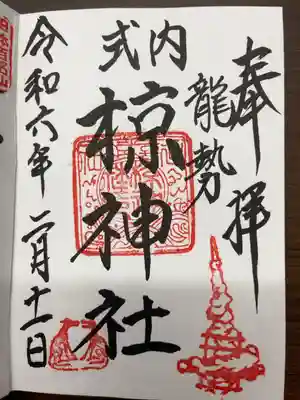 奉拝
龍勢
式内
椋神社
令和六年二月十一日